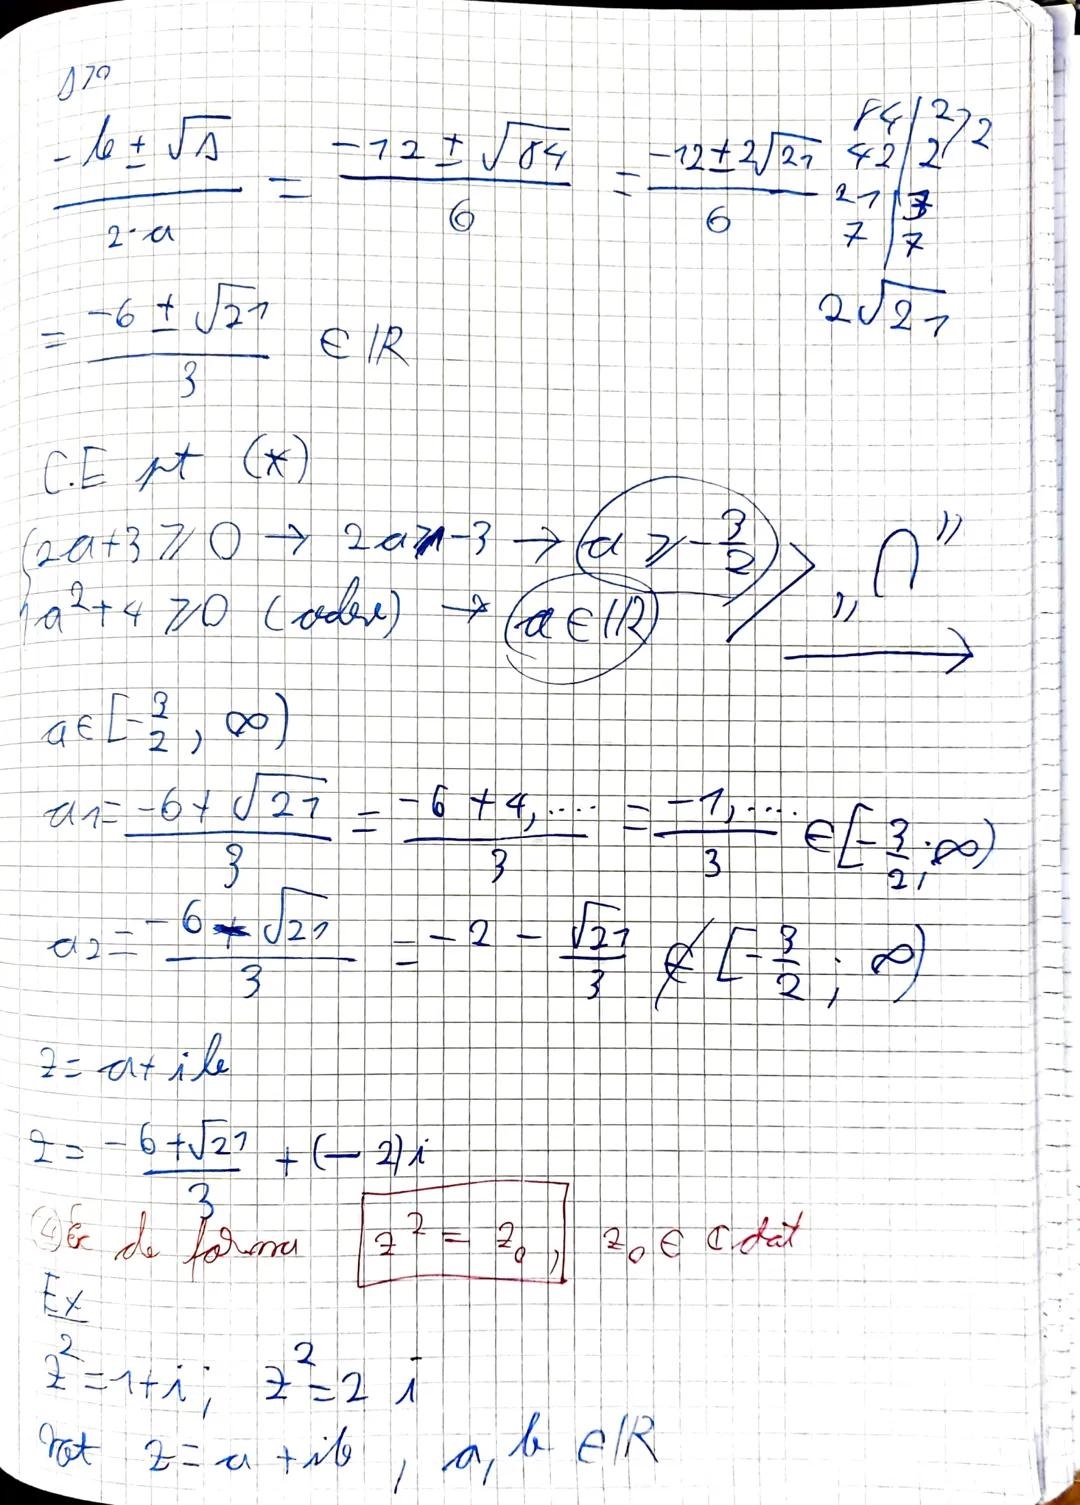 Δ>0
(-b ± √Δ)/(2·a) = (-12 ± √84)/6 = (-12 ± 2√21)/6
84 | 2
42 | 2 > 2
21 | 3
7 | 7
2√21
= (-6 ± √21)/3 ∈ ℝ
C.E pt (*)
{2a+3 ⩾ 0 → 2a ⩾ -3 → a ⩾ -3/2
a²+4 ⩾ 0 (adev) → a ∈ ℝ > „∩” →
a ∈ [-3/2, ∞)
a1 = (-6+√21)/3 = (-6+4,....)/3 = (-1,...)/3 ∈ [-3/2; ∞)
a2 = (-6-√21)/3 = -2 - √21/3 ∉ [-3/2; ∞)
z = a+ib
z = (-6+√21)/3 + (-2)i
④ Ec de forma z² = z₀, z₀ ∈ ℂ dat
Ex
z²=1+i; z²=2i
Not z = a+ib, a, b ∈ ℝ